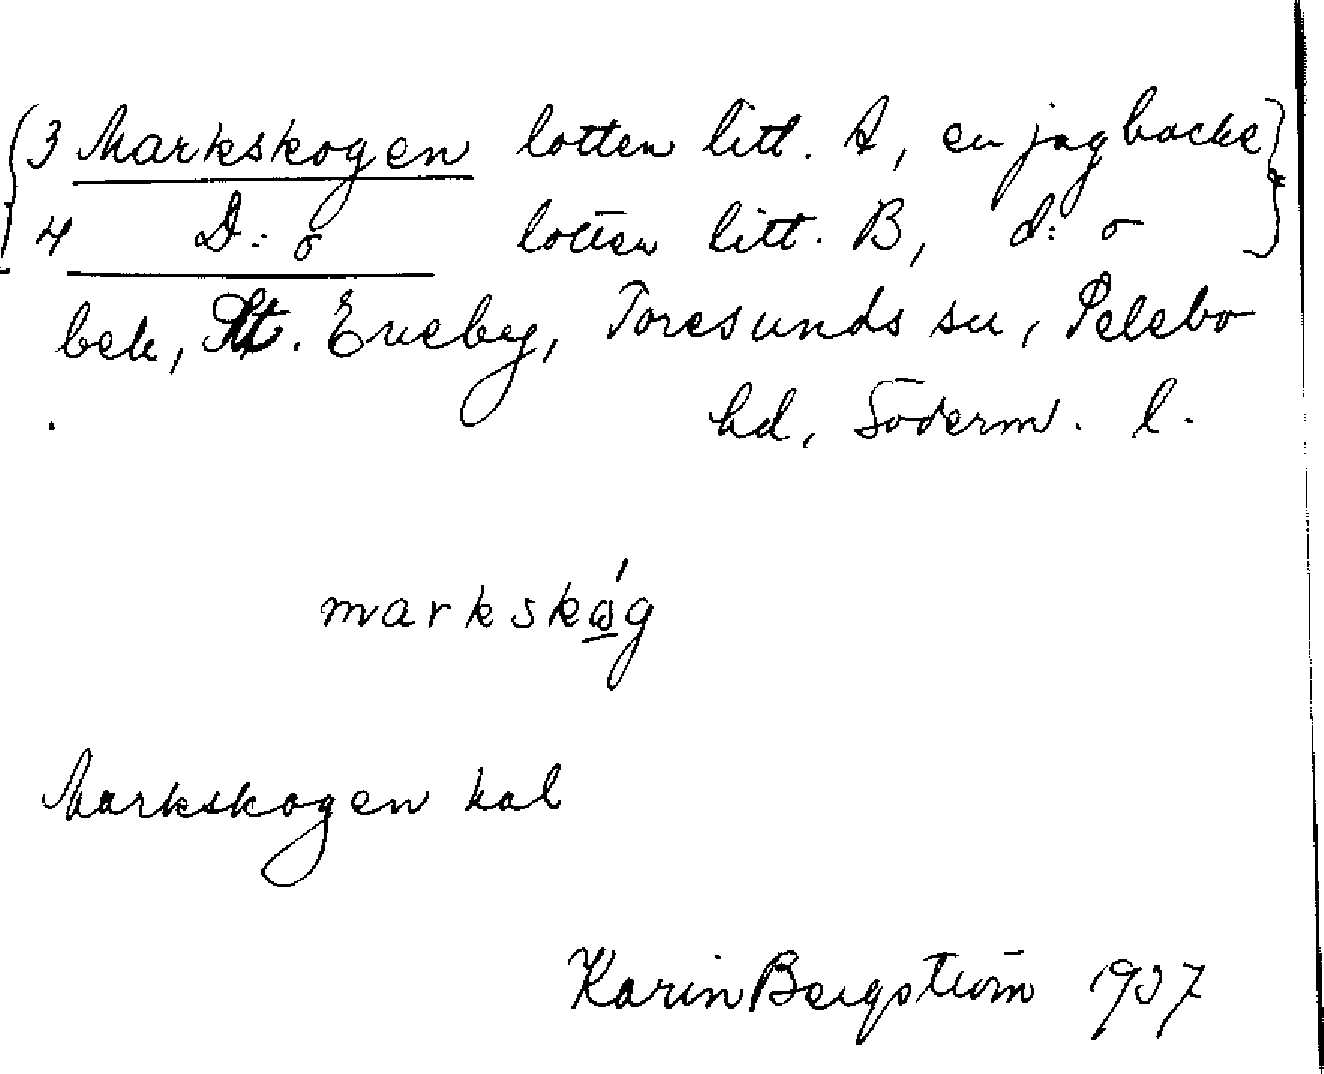 {3 Markskogen lotten litt. A, en jag backe}
{4 D:o lotten litt. B, d:o}
bek, St. Eneby, Toresunds sn, Selebo
hd, Söderm. l.
markskóg
Markskogen kal
Karin Bergström 1937